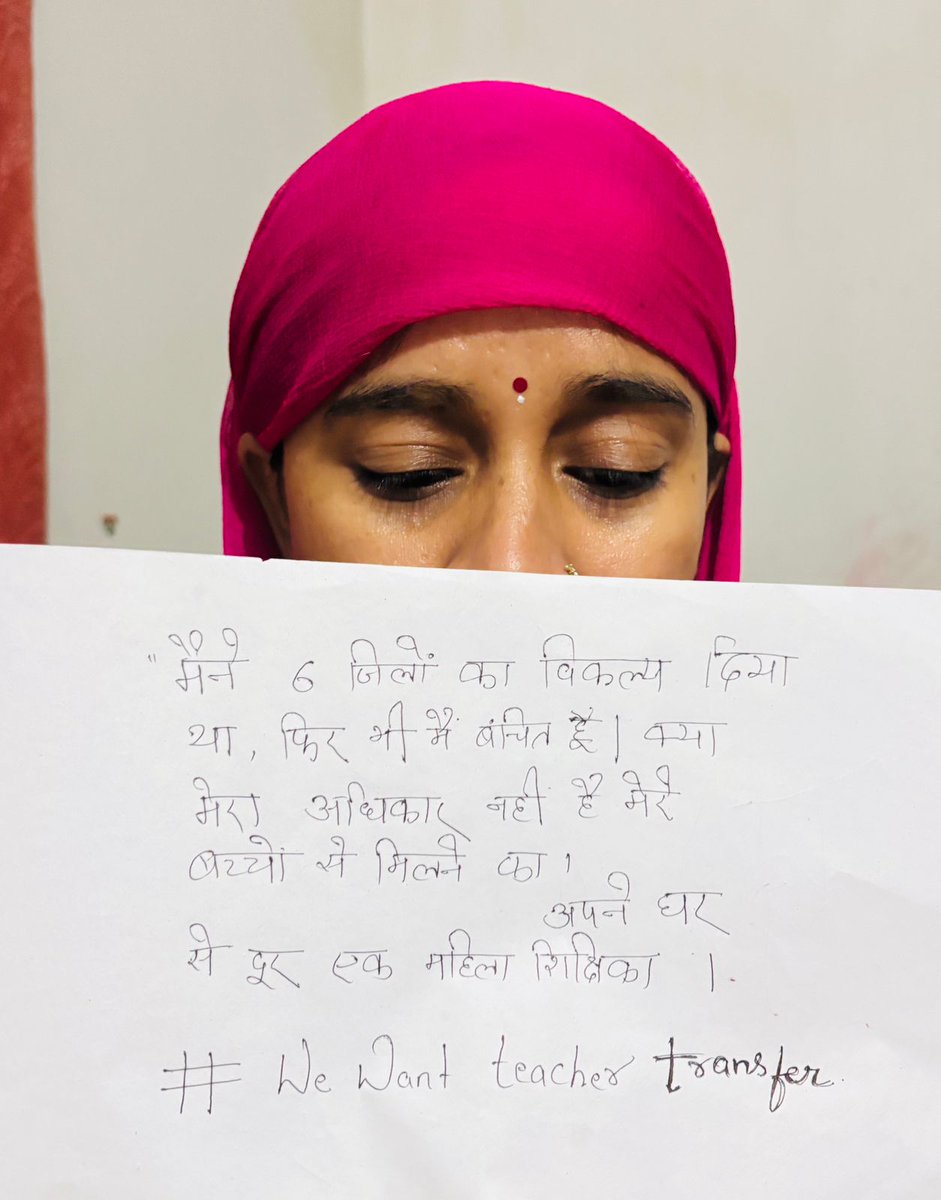 "मैंने 6 जिलों का विकल्प दिया
था, फिर भी मैं बंचित हूँ। क्या
मेरा अधिकार नहीं है मेरे
बच्चों से मिलने का।
अपने घर
से दूर एक महिला शिक्षिका ।
# We Want teacher transfer.